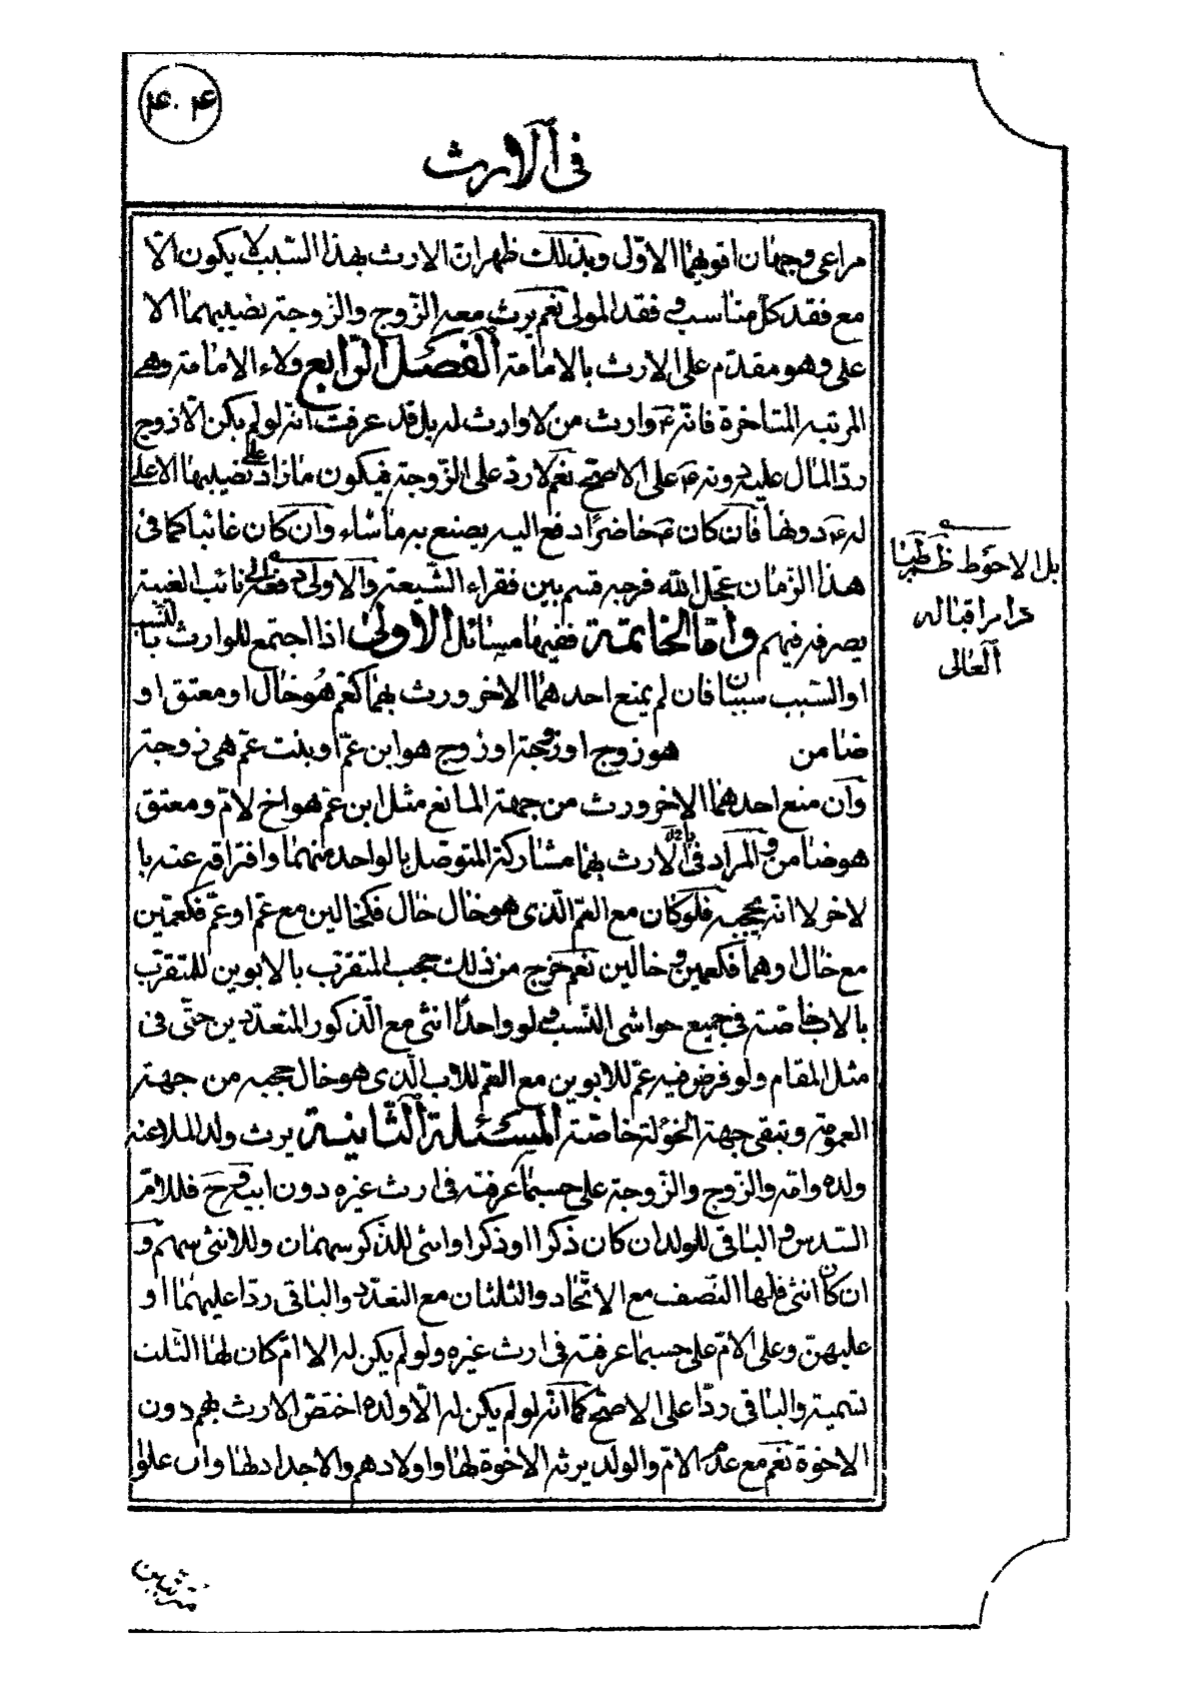 ۴۰۴
فى الارث
مراعى وجهان اقويهما الاوّل وبذلك ظهر ان الارث بهذا السّبب لا يكون الّا
مع فقد كل مناسب و فقد المولى نعم يرث معه الزّوج والزّوجة نصيبهما الا
على وهو مقدّم على الارث بالامامة الفصل الرّابع ولاء الامامة وهى
المرتبه المتاخرة فانّه ع وارث من لا وارث له بل قد عرفت انّه لو لم يكن الّا زوج
ردّ المال عليه دونه ع على الاصحّ نعم لا ردّ على الزّوجة فيكون ما زاد على نصيبها الاعلى
له ع دونها فان كان ع حاضرًا دفع اليه يصنع به ما شاء وان كان غائبا كما فى
هذا الزّمان عجّل الله فرجه قسم بين فقراء الشّيعة والاولى دفعه الى نائب الغيبة
يصرفه فيهم وامّا الخاتمة ففيها مسائل الاولى اذا اجتمع للوارث بالنّسب
او السّبب سببان فان لم يمنع احدهما الاخر ورث بهما كعم هو خال او معتق او
ضامن هو زوج او زوجة او زوج هو ابن عمّ او بنت عمّ هى زوجة
وان منع احدهما الاخر ورث من جهة المانع مثل ابن عم هو اخ لامّ ومعتق
هو ضامن و المراد فى الارث بهما مشاركة المتوصل بالواحد منهما وافتراقه عنه با
لاخر لا انّه يحجبه فلو كان مع العمّ الّذى هو خال خال فكخالين مع عمّ او عمّ فكعمّين
مع خال او هما فكعمين و خالين نعم خرج من ذلك حجب المتقرّب بالابوين للمتقرّب
بالاب خاصّة فى جميع حواشى النّسب و لو واحدًا انثى مع الذّكور المتعدّدين حتّى فى
مثل المقام ولو فرض فيه عمّ للابوين مع العمّ للاب الّذى هو خال حجبه من جهة
العمومة وتبقى جهة الخؤلة خاصّة المسئلة الثّانية يرث ولد الملاعنه
ولده وامّه والزّوج والزّوجة على حسبما عرفته فى ارث غيره دون ابيه و ح فللامّ
السّدس و الباقى للولد ان كان ذكرا او ذكرا وانثى للذّكر سهمان وللانثى سهم و
ان كان انثى فلها النّصف مع الاتّحاد والثلثان مع التعدّد والباقى ردّا عليهما او
عليهنّ وعلى الامّ على حسبما عرفته فى ارث غيره ولو لم يكن له الا امّ كان لها الثّلث
تسمية والباقى ردّا على الاصحّ كما انّه لو لم يكن له الّا ولده اختصّ الارث بهم دون
الاخوة نعم مع عدم الامّ والولد يرثه الاخوة لها واولادهم والاجداد لها وان علوا
بل الاحوط
دام اقباله
العالى